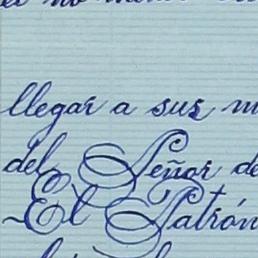 llegar a sus m
del Señor de
El Patrón